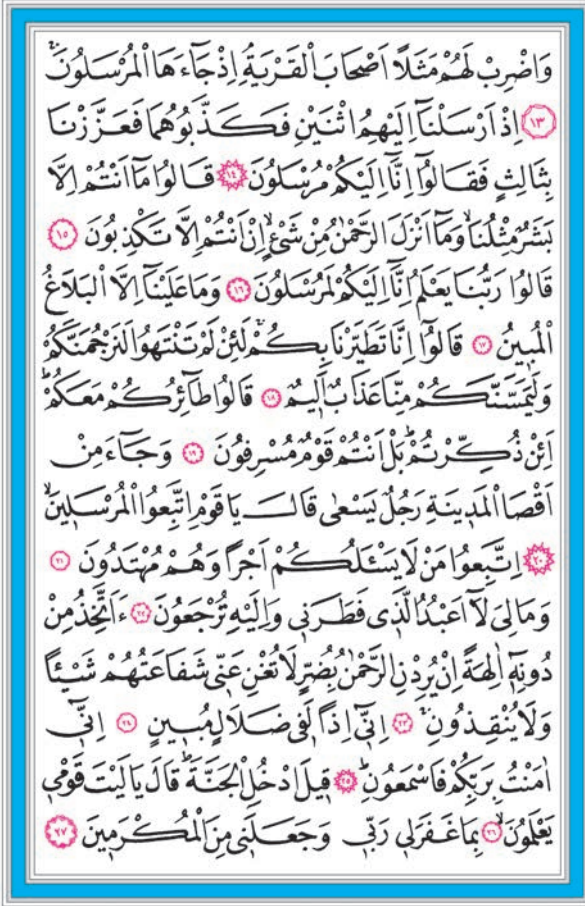 وَاضْرِبْ لَهُمْ مَثَلًا اَصْحَابَ الْقَرْيَةِۘ اِذْ جَٓاءَهَا الْمُرْسَلُونَۚ
﴿١٣﴾ اِذْ اَرْسَلْنَٓا اِلَيْهِمُ اثْنَيْنِ فَكَذَّبُوهُمَا فَعَزَّزْنَا
بِثَالِثٍ فَقَالُٓوا اِنَّٓا اِلَيْكُمْ مُرْسَلُونَ ﴿١٤﴾ قَالُوا مَٓا اَنْتُمْ اِلَّا
بَشَرٌ مِثْلُنَاۙ وَمَٓا اَنْزَلَ الرَّحْمٰنُ مِنْ شَيْءٍۙ اِنْ اَنْتُمْ اِلَّا تَكْذِبُونَ ﴿١٥﴾
قَالُوا رَبُّنَا يَعْلَمُ اِنَّٓا اِلَيْكُمْ لَمُرْسَلُونَ ﴿١٦﴾ وَمَا عَلَيْنَٓا اِلَّا الْبَلَاغُ
الْمُبِينُ ﴿١٧﴾ قَالُٓوا اِنَّا تَطَيَّرْنَا بِكُمْۚ لَئِنْ لَمْ تَنْتَهُوا لَنَرْجُمَنَّكُمْ
وَلَيَمَسَّنَّكُمْ مِنَّا عَذَابٌ اَلِيمٌ ﴿١٨﴾ قَالُوا طَٓائِرُكُمْ مَعَكُمْۜ
اَئِنْ ذُكِّرْتُمْۜ بَلْ اَنْتُمْ قَوْمٌ مُسْرِفُونَ ﴿١٩﴾ وَجَٓاءَ مِنْ
اَقْصَا الْمَدِينَةِ رَجُلٌ يَسْعٰى قَالَ يَا قَوْمِ اتَّبِعُوا الْمُرْسَلِينَۙ
﴿٢٠﴾ اِتَّبِعُوا مَنْ لَا يَسْـَٔلُكُمْ اَجْرًا وَهُمْ مُهْتَدُونَ ﴿٢١﴾
وَمَا لِيَ لَٓا اَعْبُدُ الَّذِي فَطَرَنِي وَاِلَيْهِ تُرْجَعُونَ ﴿٢٢﴾ ءَاَتَّخِذُ مِنْ
دُونِهِٓ اٰلِهَةً اِنْ يُرِدْنِ الرَّحْمٰنُ بِضُرٍّ لَا تُغْنِ عَنِّي شَفَاعَتُهُمْ شَيْـًٔا
وَلَا يُنْقِذُونِۚ ﴿٢٣﴾ اِنِّٓي اِذًا لَفِي ضَلَالٍ مُبِينٍ ﴿٢٤﴾ اِنِّٓي
اٰمَنْتُ بِرَبِّكُمْ فَاسْمَعُونِۜ ﴿٢٥﴾ قِيلَ ادْخُلِ الْجَنَّةَۜ قَالَ يَا لَيْتَ قَوْمِي
يَعْلَمُونَۙ ﴿٢٦﴾ بِمَا غَفَرَ لِي رَبِّي وَجَعَلَنِي مِنَ الْمُكْرَمِينَ ﴿٢٧﴾